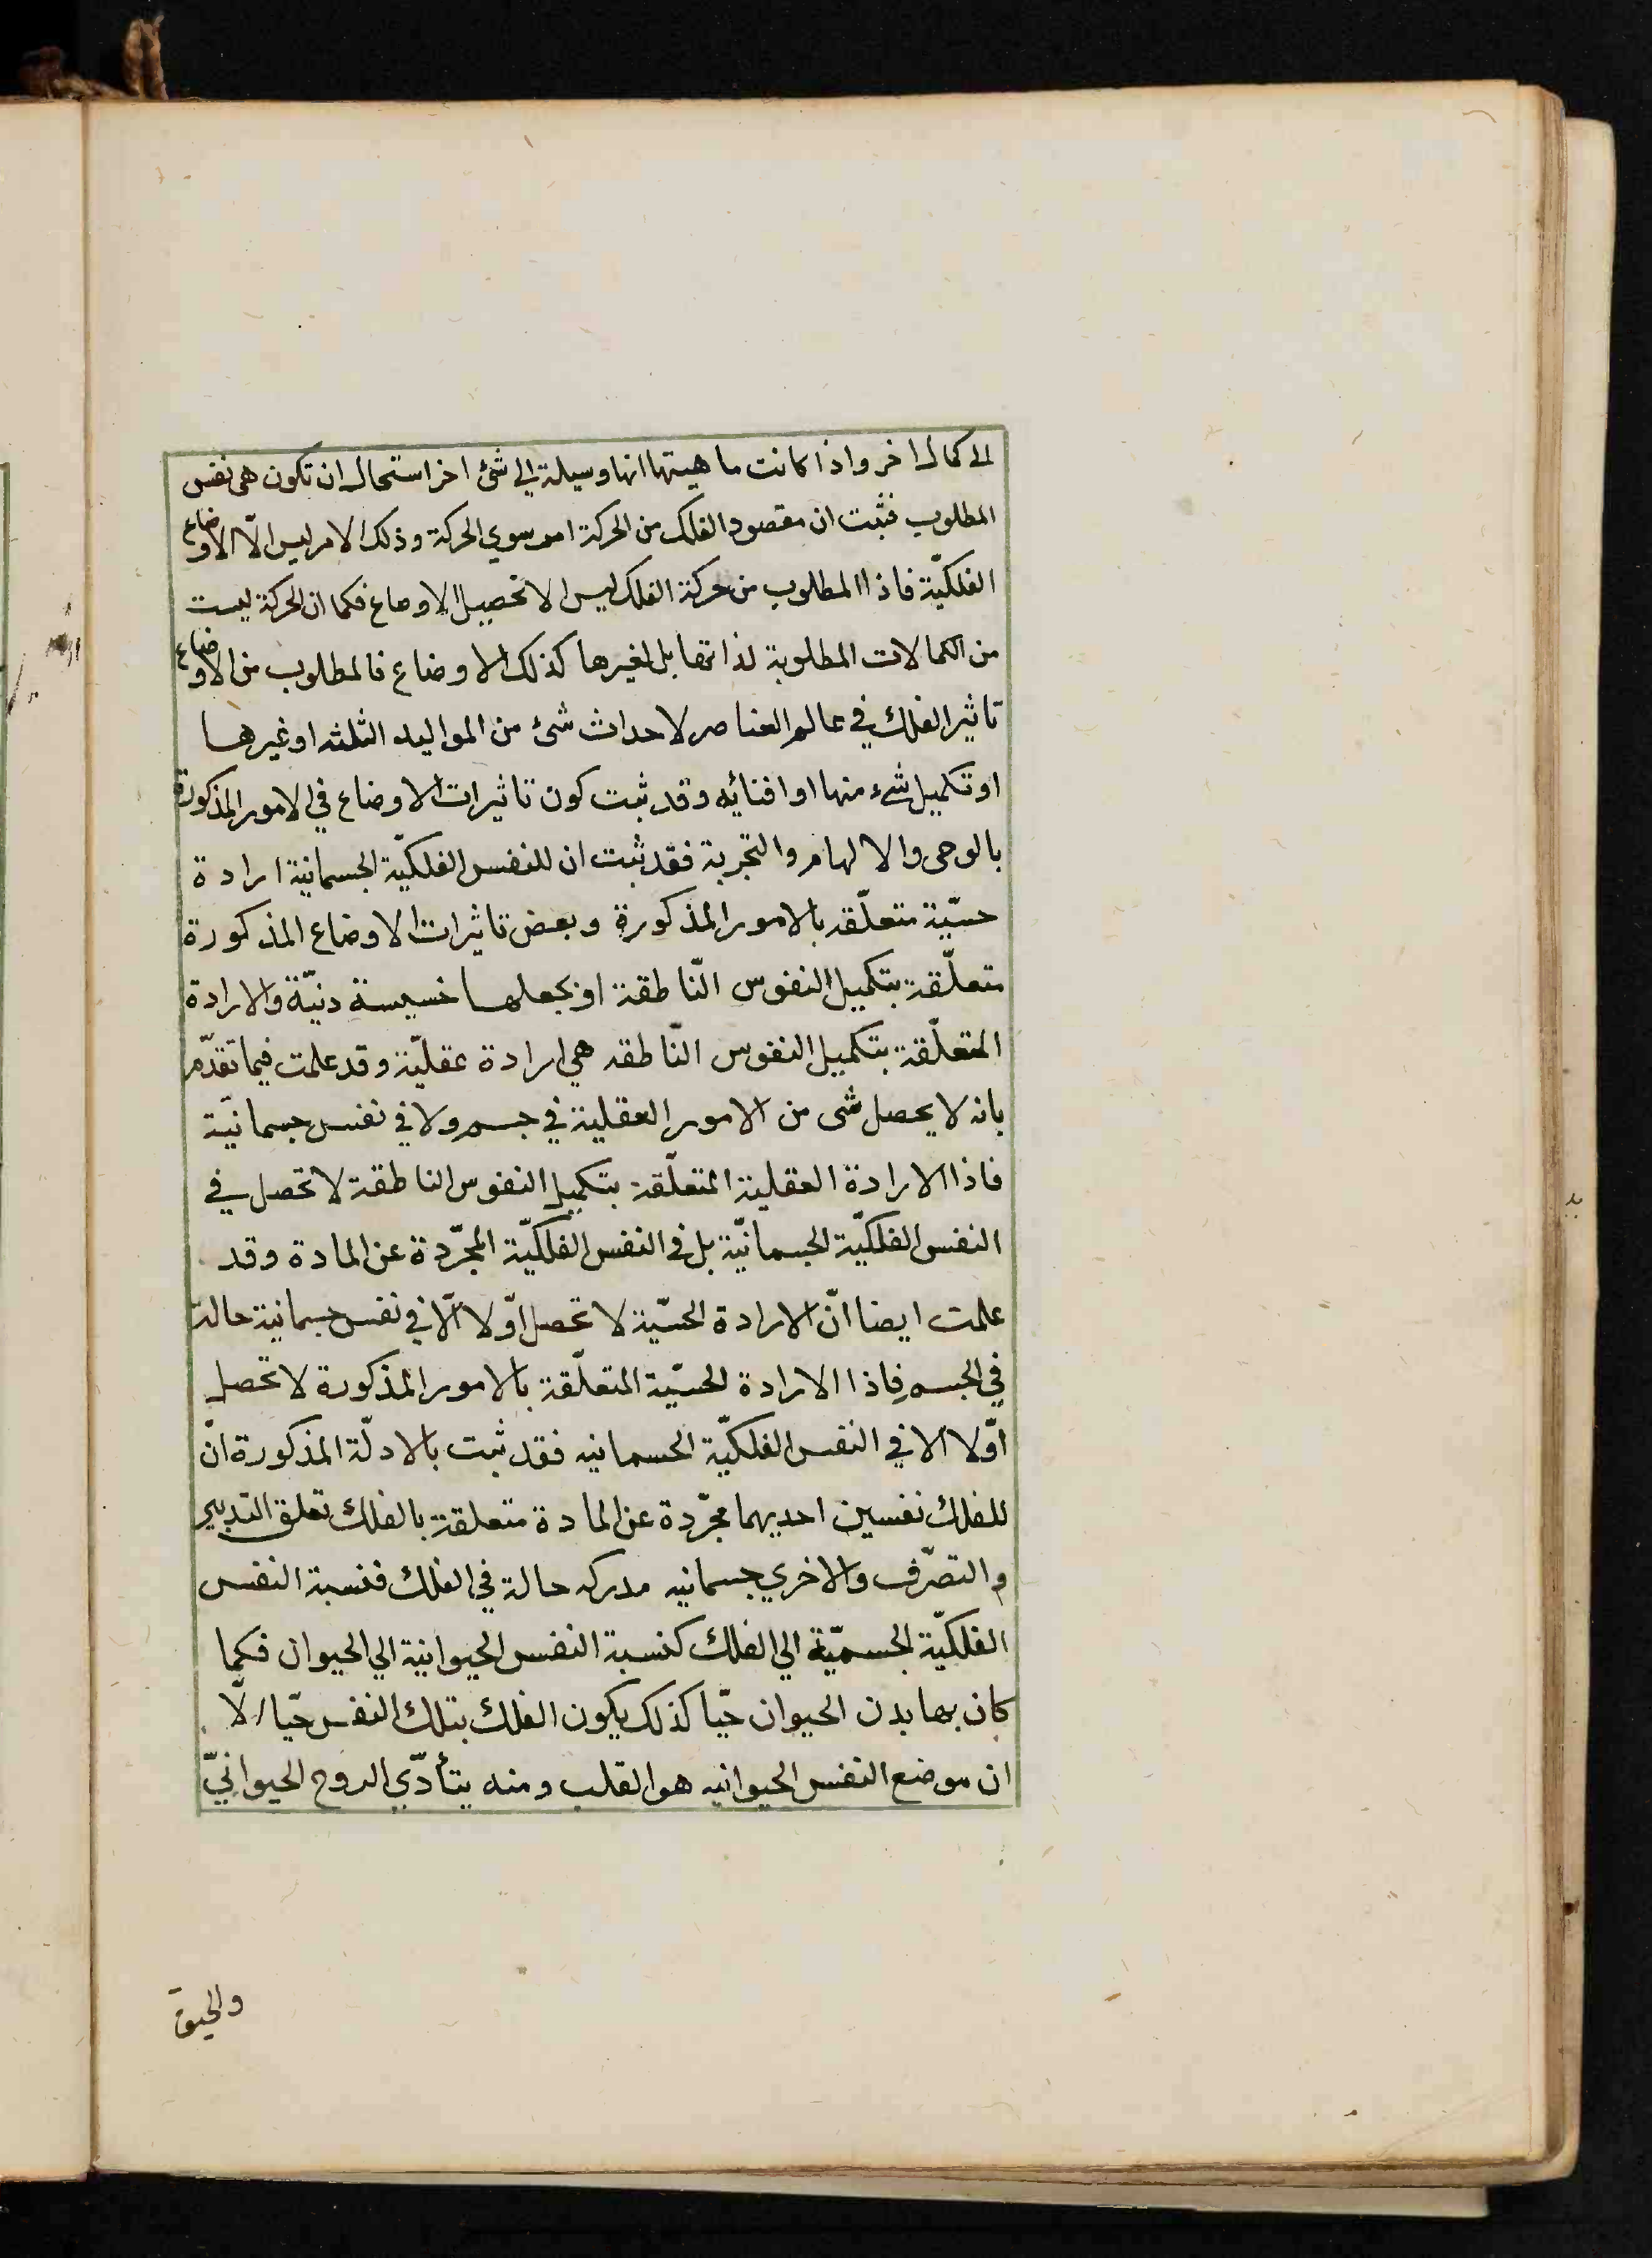 الى كمال اخر واذا كانت ماهيتها انها وسيلة الي شئ اخر استحال ان تكون هى نفس
المطلوب فثبت ان مقصود الفلك من الحركة امر سوي الحركة وذلك الامر ليس الّا الاوضاع
الفلكيّة فاذا المطلوب من حركة الفلك ليس الا تحصيل الاوضاع فكما ان الحركة ليست
من الكمالات المطلوبة لذاتها بل لغيرها كذلك الاوضاع فالمطلوب من الاوضاع
تاثير الفلك في عالم العناصر لاحداث شئ من المواليد الثلثه او غيرها
او تكميل شىء منها او افنائه وقد ثبت كون تاثيرات الاوضاع في الامور المذكورة
بالوحى والالهام والتجربة فقد ثبت ان للنفس الفلكيّة الجسمانية ارادة
حسّية متعلّقه بالامور المذكورة وبعض تاثيرات الاوضاع المذكورة
متعلّقة بتكميل النفوس النّاطقة او بجعلها خسيسة دنيّة والارادة
المتعلّقة بتكميل النفوس النّاطقه هي ارادة عقليّة وقد علمت فيما تقدّم
بانه لا يحصل شى من الامور العقلية في جسم ولا في نفس جسمانيّة
فاذا الارادة العقلية المتعلّقة بتكميل النفوس الناطقة لا تحصل في
النفس الفلكيّة الجسمانيّة بل فى النفس الفلكيّة المجرّدة عن المادة وقد
علمت ايضا انّ الارادة الحسّية لا تحصل اوّلا الّا في نفس جسمانية حالة
في الجسم فاذا الارادة الحسّية المتعلّقة بالامور المذكورة لا تحصل
اوّلا الا في النفس الفلكيّة الجسمانيه فقد ثبت بالادلّة المذكورة انّ
للفلك نفسين احديهما مجرّدة عن المادة متعلقة بالفلك تعلق التدبير
والتصرّف والاخري جسمانيه مدركه حالة في الفلك فنسبة النفس
الفلكيّة الجسميّة الي الفلك كنسبة النفس الحيوانية الي الحيوان فكما
كان بها بدن الحيوان حيّا كذلك يكون الفلك بتلك النفس حيّا الّا
ان موضع النفس الحيوانيه هو القلب ومنه يتأدّي الروح الحيوانيّ